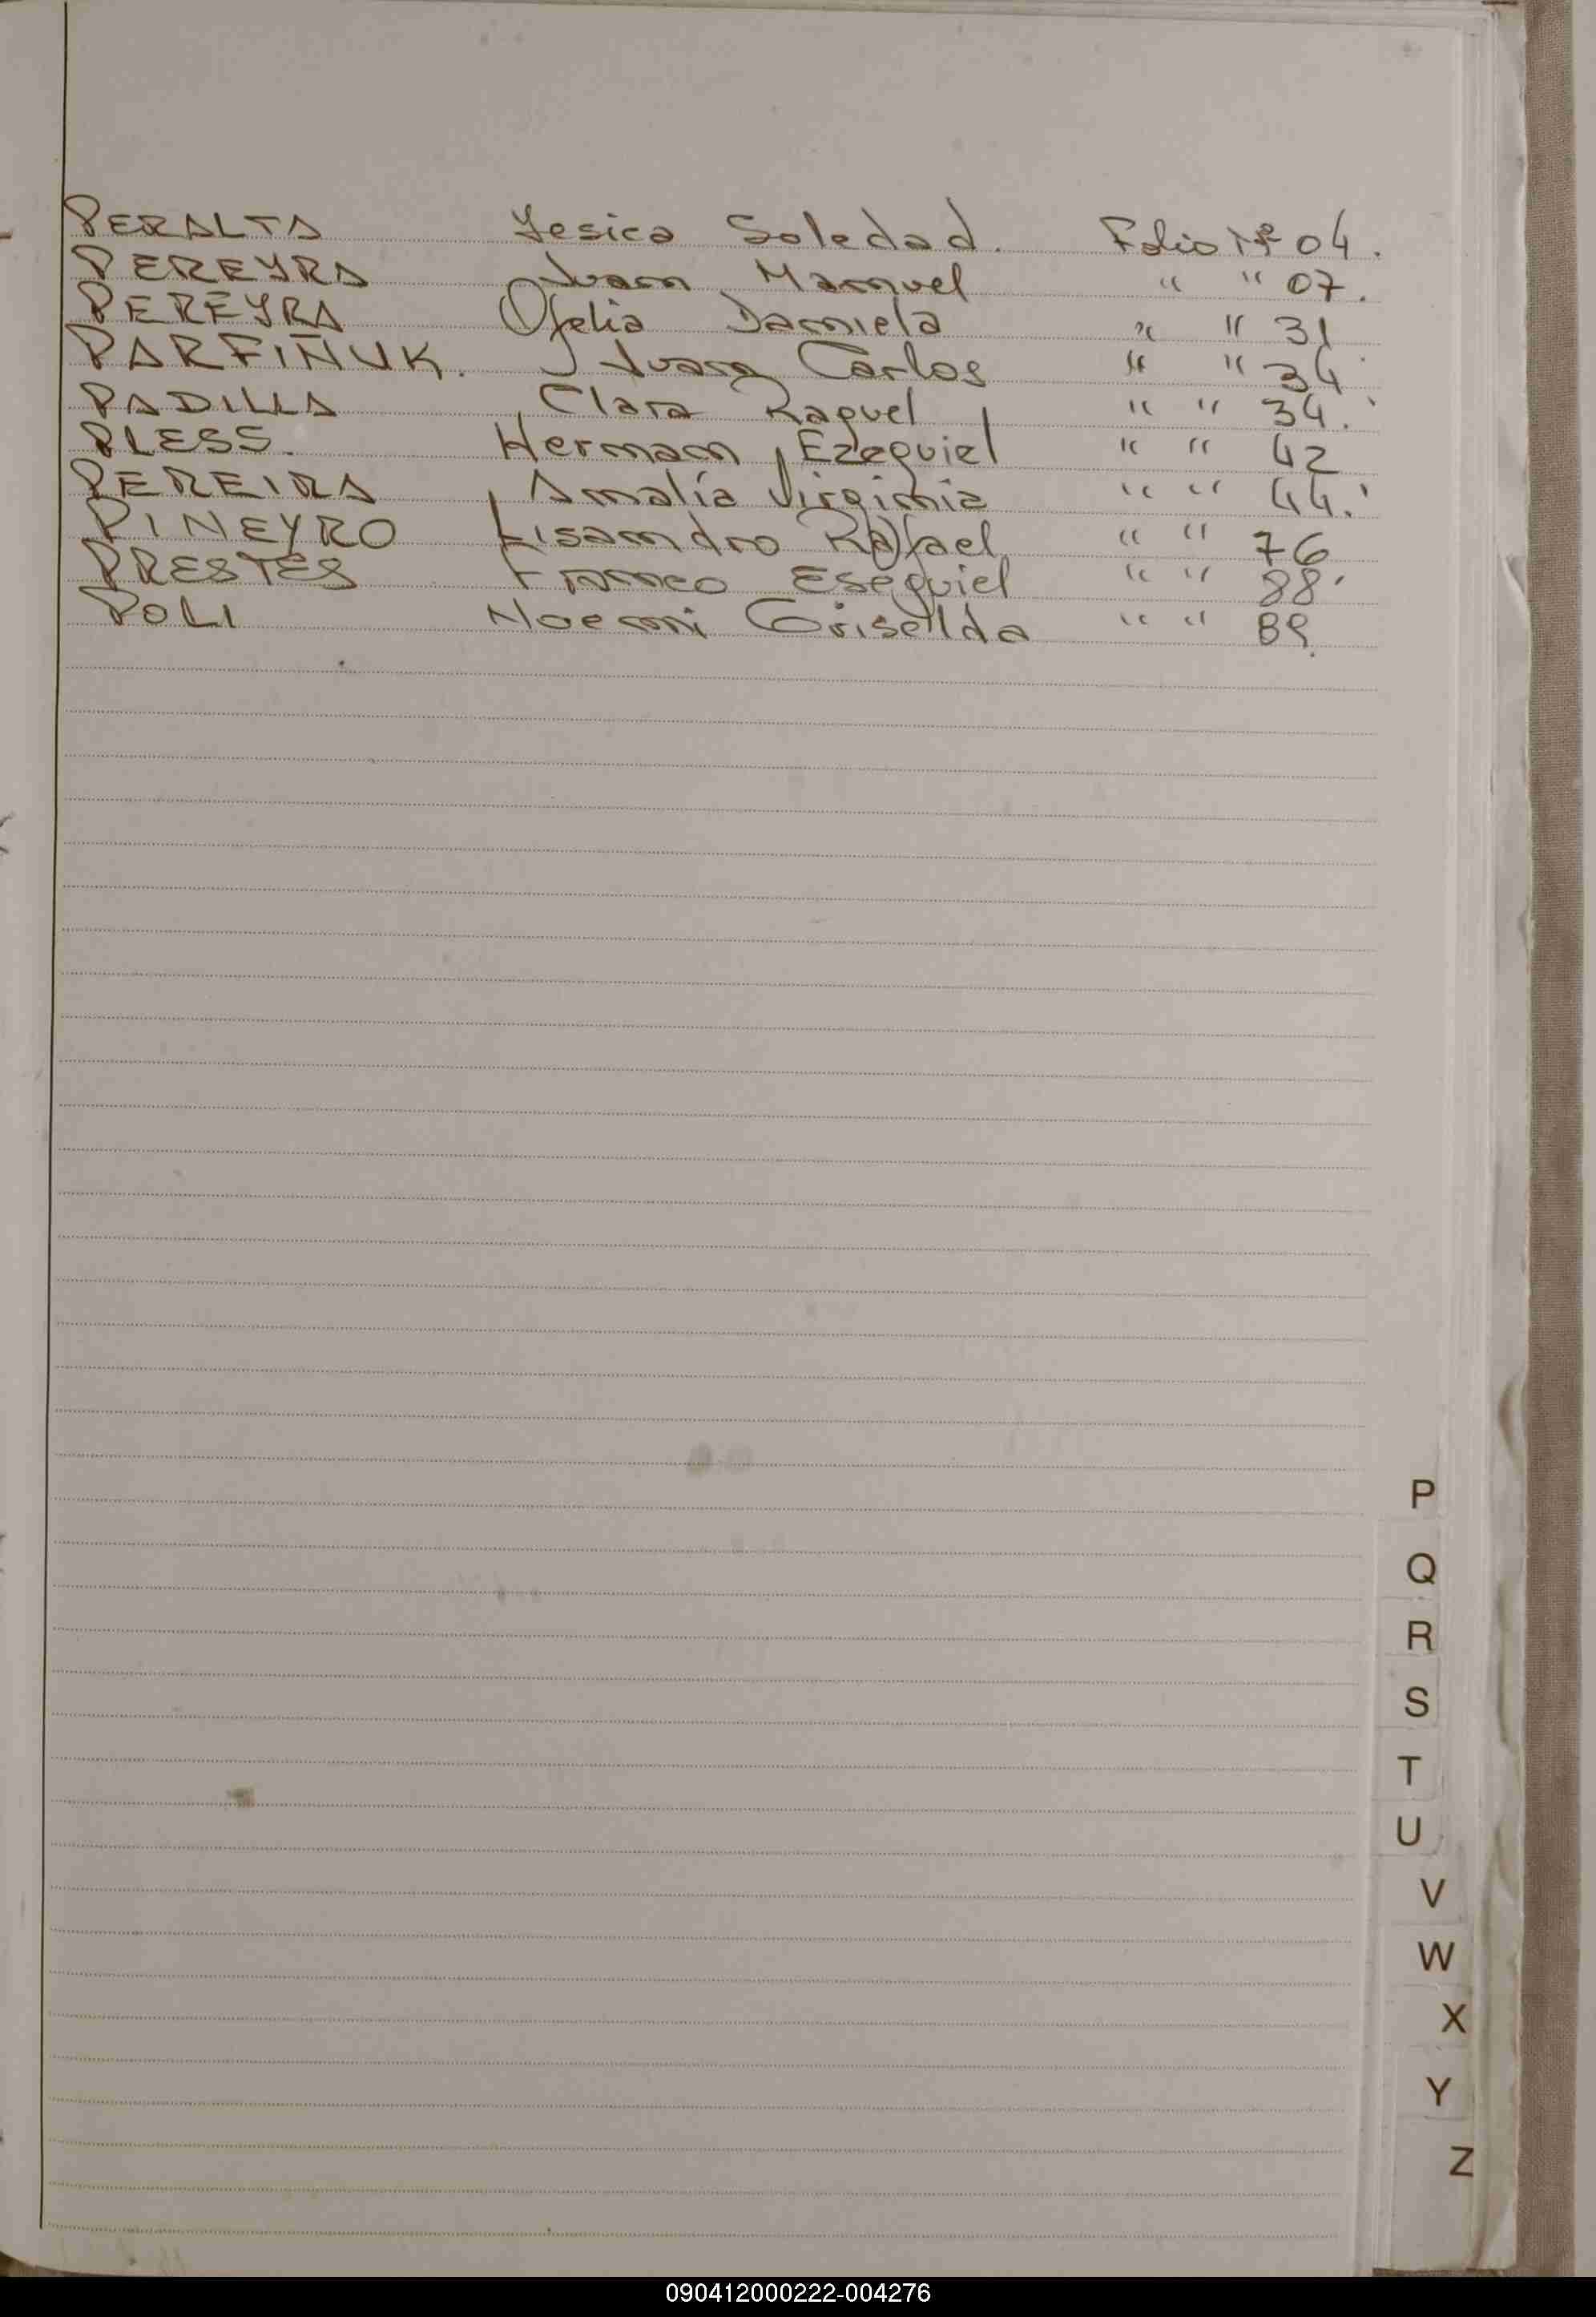 PERALTA Yesica Soledad. Folio Nº 04.
PEREYRA Juan Manuel " " 07.
PEREYRA Ofelia Daniela " " 31
PARFIÑUK. Juan Carlos " " 34.
PADILLA Clara Raquel " " 34.
PLESS. Hernan Ezequiel " " 42
PEREIRA Amalía Virginia " " 44.
PINEYRO Lisandro Rafael " " 76
PRESTES Franco Esequiel " " 88.
POLI Noemi Griselda " " 89.
P
Q
R
S
T
U
V
W
X
Y
Z
090412000222-004276